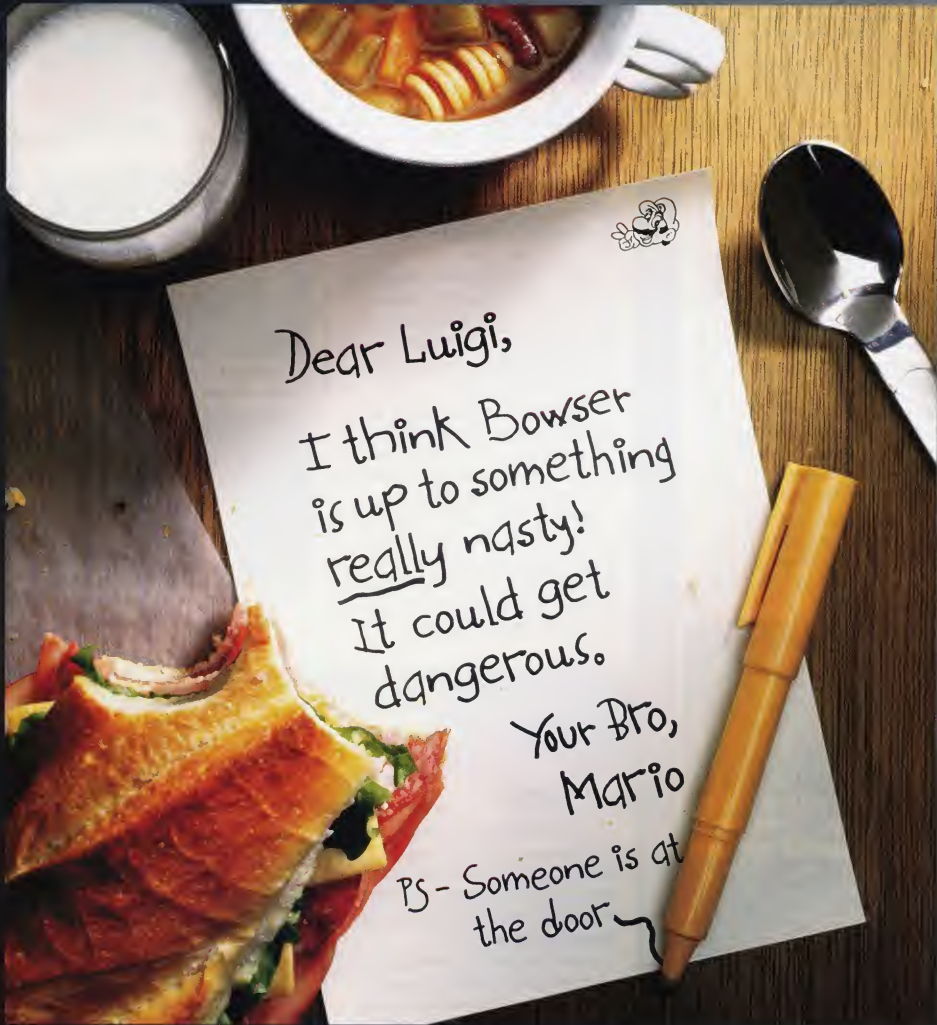 Dear Luigi,
I think Bowser
is up to something
really nasty!
It could get
dangerous.
Your Bro,
Mario
PS- Someone is at
the door